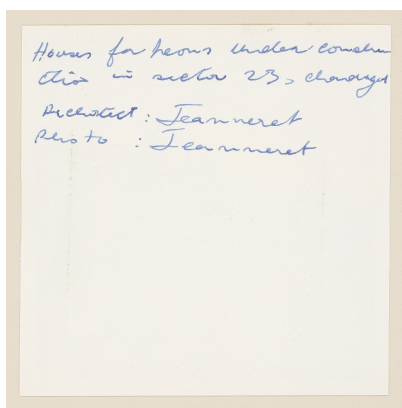 Houses for peons under constru
ction in sector 23, chandigarh
Architect : Jeanneret
Photo : Jeanneret